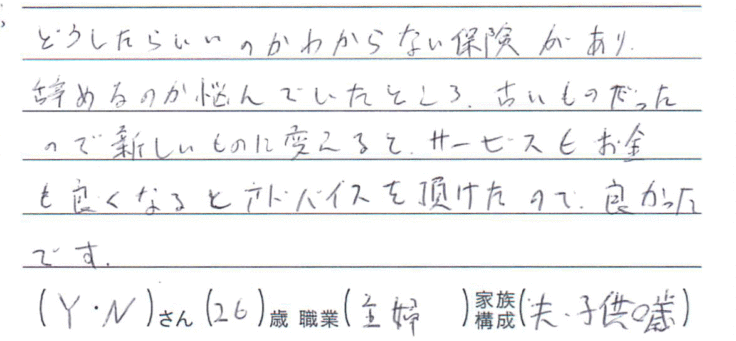 どうしたらいいのかわからない保険があり、
辞めるのか悩んでいたところ、古いものだった
ので新しいものに変えると、サービスもお金
も良くなるとアドバイスを頂けたので、良かった
です。
(Y・N)さん(26)歳 職業(主婦)家族構成(夫・子供0歳)